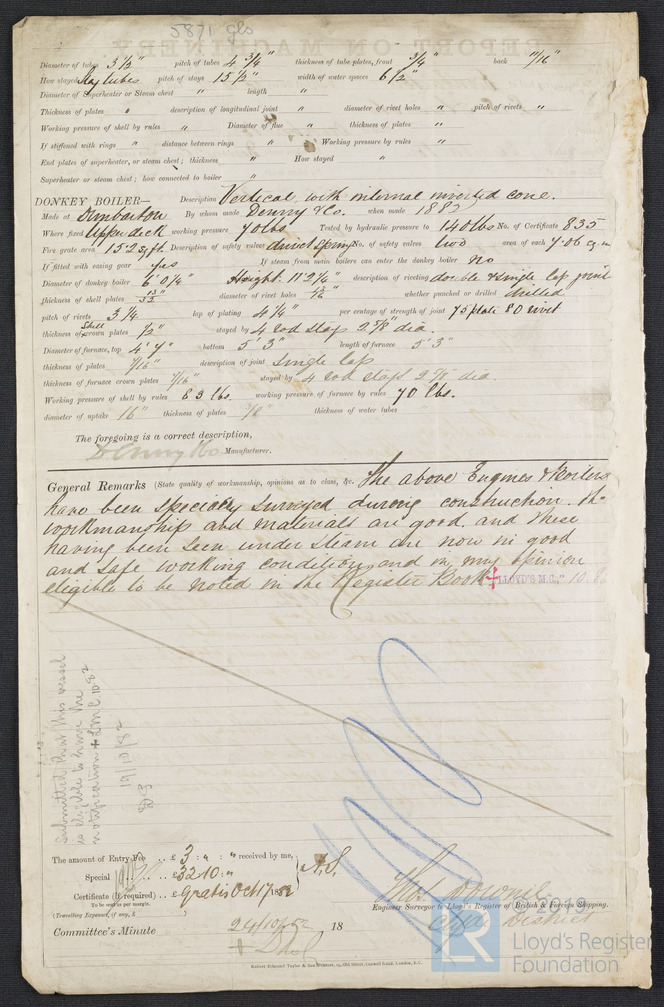 5871 Gls
Diameter of tubes 3 1/2" pitch of tubes 4 3/4" thickness of tube plates, front 3/4" back 11/16"
How stayed Stay tubes pitch of stays 15 1/2" width of water spaces 6 1/2"
Diameter of Superheater or Steam chest " length "
Thickness of plates " description of longitudinal joint " diameter of rivet holes " pitch of rivets "
Working pressure of shell by rules " Diameter of flue " thickness of plates "
If stiffened with rings " distance between rings " Working pressure by rules "
End plates of superheater, or steam chest; thickness " How stayed "
Superheater or steam chest; how connected to boiler "
DONKEY BOILER— Description Vertical, with internal inverted cone.
Made at Dumbarton By whom made Denny & Co. when made 1882
Where fixed Upper deck working pressure 70 lbs. Tested by hydraulic pressure to 140 lbs No. of Certificate 835
Fire grate area 15.2 sq. ft. Description of safety valves direct Spring No. of safety valves two area of each 7.06 sq. in
If fitted with easing gear yes If steam from main boilers can enter the donkey boiler No
Diameter of donkey boiler 6' 0 1/4" Height. 11' 2 1/4" description of riveting double & single lap joint
thickness of shell plates 13/32" diameter of rivet holes 13/16" whether punched or drilled drilled
pitch of rivets 3 1/4 lap of plating 4 1/4" per centage of strength of joint 75 plate 80 rivet
thickness of Shell crown plates 1/2" stayed by 4 rod stays 2 5/8" dia.
Diameter of furnace, top 4' 7" bottom 5' 3" length of furnace 5' 3"
thickness of plates 9/16" description of joint Single lap
thickness of furnace crown plates 9/16" stayed by 4 rod stays 2 5/8" dia.
Working pressure of shell by rules 83 lbs. working pressure of furnace by rules 70 lbs.
diameter of uptake 16" thickness of plates 7/16" thickness of water tubes
The foregoing is a correct description,
Denny & Co Manufacturer.
General Remarks (State quality of workmanship, opinions as to class, &c. The above Engines & Boilers
have been Specially Surveyed during construction. the
workmanship and materials are good, and these
having been seen under steam are now in good
and safe working condition, and in my opinion
eligible to be noted in the Register Book + LLOYD'S M.C. " 10.82
Submitted that this vessel
is eligible to have the
notification + LMC 10.82
19/10/82
The amount of Entry Fee .. £ 3 : " : " received by me,
Special .. £ 32 . 10 : "
Certificate (if required) .. £ Gratis Oct 17 1882
To be sent as per margin.
(Travelling Expenses, if any, £ )
A.S.
Thos Downie
Engineer Surveyor to Lloyd's Register of British & Foreign Shipping.
Clyde District
Committee's Minute 24/10/82 18
Robert Edmund Taylor & Son, Printers, 19, Old Street, Goswell Road, London, E.C.
LR
Lloyd's Register
Foundation